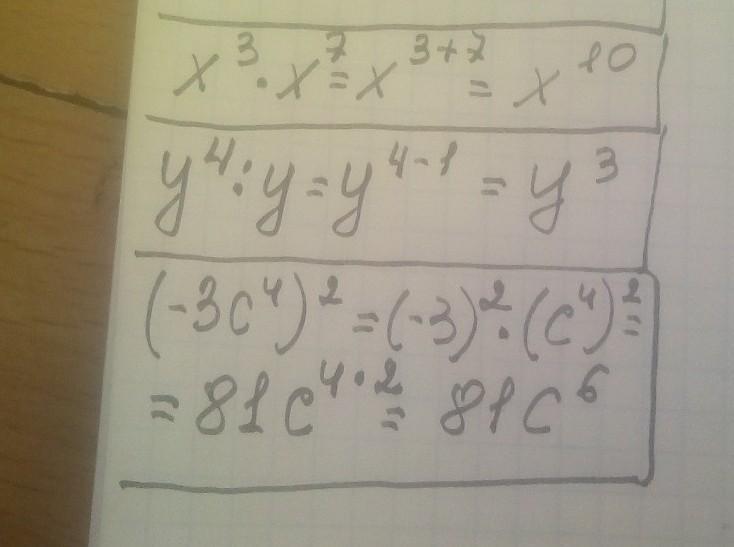 x³·x⁷=x³⁺⁷=x¹⁰
y⁴:y=y⁴⁻¹=y³
(-3c⁴)²=(-3)²·(c⁴)²=
=81c⁴˙²=81c⁶